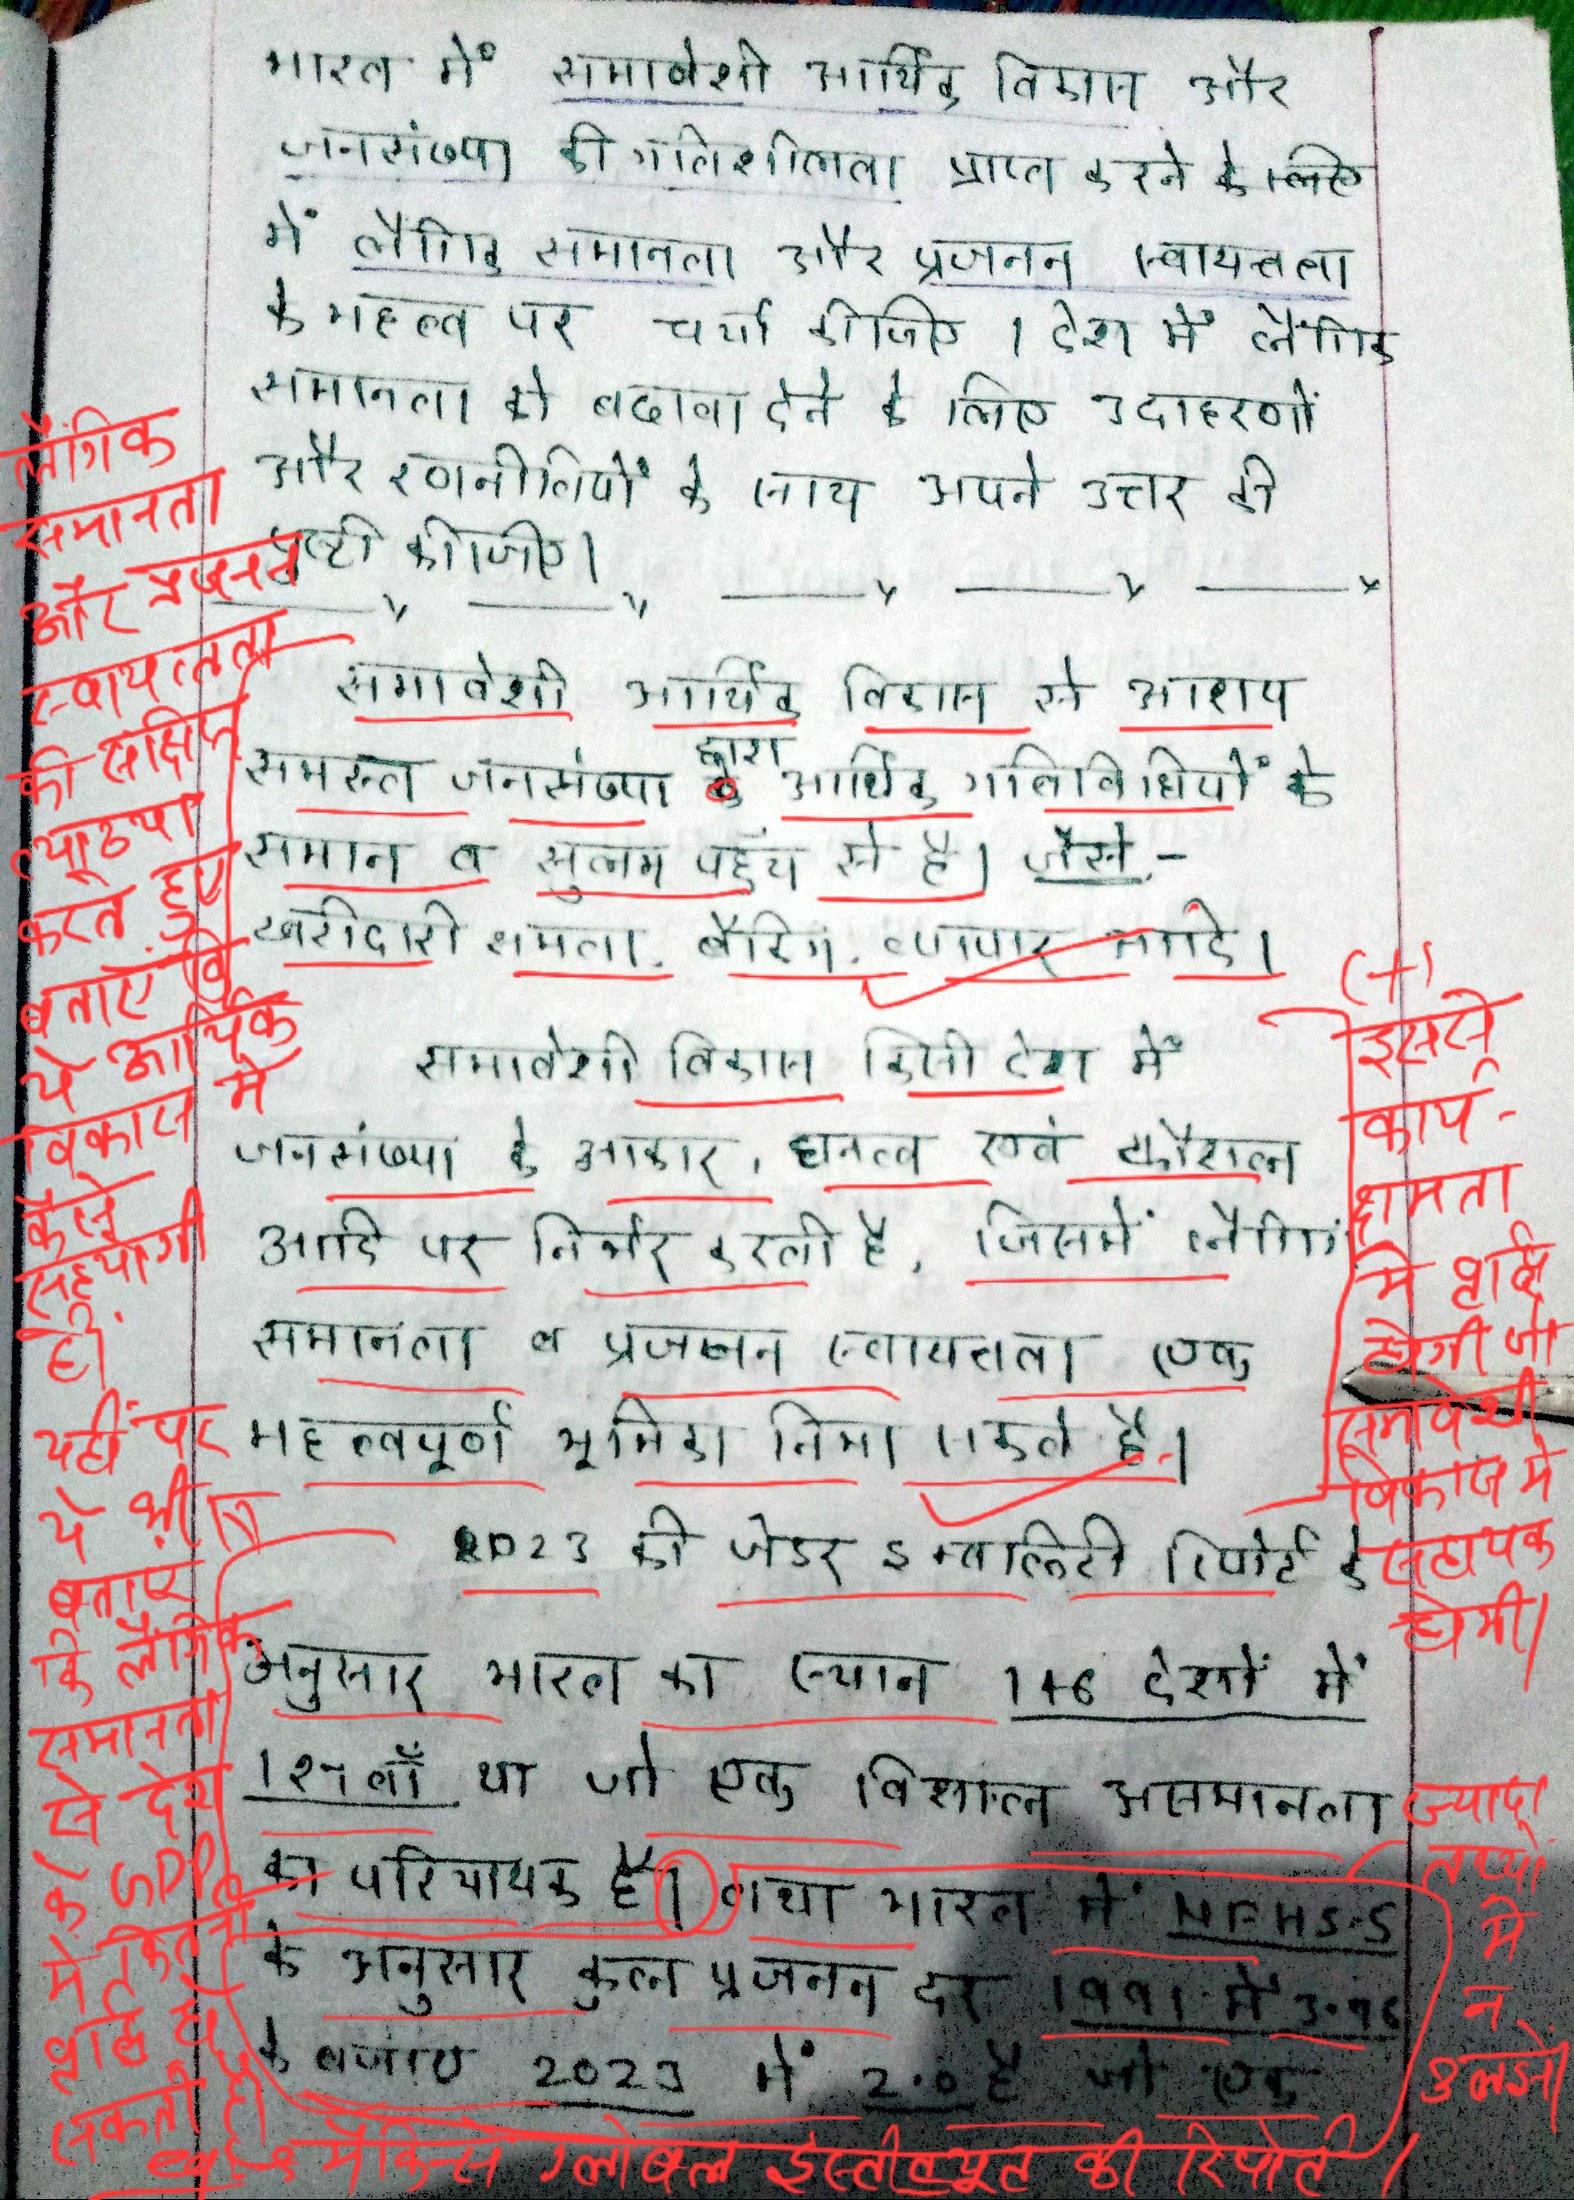 भारत में समावेशी आर्थिक विकास और
जनसंख्या की गतिशीलता प्राप्त करने के लिए
में लैंगिक समानता और प्रजनन स्वायत्तता
के महत्व पर चर्चा कीजिए । देश में लैंगिक
समानता को बढावा देने के लिए उदाहरणों
और रणनीतियों के साथ अपने उत्तर की
पुष्टी कीजिए।
समावेशी आर्थिक विकास से आशय
समस्त जनसंख्या द्वारा आर्थिक गतिविधियों के
समान व सुलभ पहुँच से है। जैसे.-
खरीदारी क्षमता, बैंकिंग, व्यापार आदि।
समावेशी विकास किसी देश में
जनसंख्या के आकार, घनत्व एवं कौशल
आदि पर निर्भर करती है, जिसमें लैंगिग
समानता व प्रजनन स्वायत्तता एक
महत्त्वपूर्ण भूमिका निभा सकते है।
2023 की जेंडर इक्वालिटी रिपोर्ट के
अनुसार भारत का स्थान 146 देशों में
127वाँ था जो एक विशाल असमानता
का परिचायक है। तथा भारत में NFHS-5
के अनुसार कुल प्रजनन दर 1991 में 3.96
के बजाए 2023 में 2.0 है जो एक
लैंगिक
समानता
और प्रजनन
स्वायत्तता
की संक्षिप्त
व्याख्या
करते हुए
बताएं कि
ये आर्थिक
विकास में
कैसे
सहयोगी
है।
यहीं पर
ये भी
बताए
कि लैंगिक
समानता
से देश
के GDP
में कितनी
वृद्धि हो
सकती है।
(+)
इससे
कार्य-
क्षमता
में वृद्धि
होगी जो
समावेशी
विकास में
सहायक
होगी।
ज्यादा
तथ्यों
में
न
उलझें
मैकिन्से ग्लोबल इंस्तीट्यूत की रिपोर्ट।